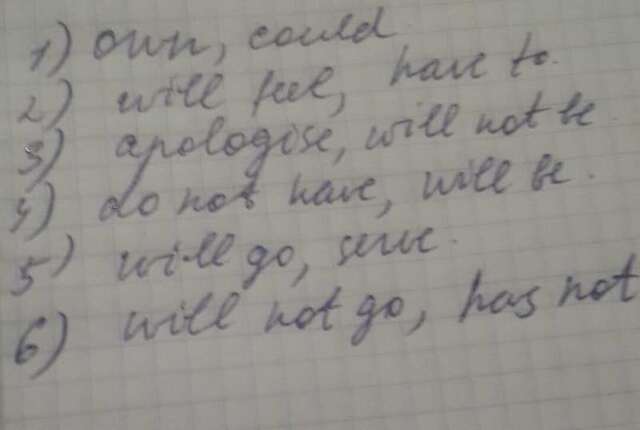 1) own, could
2) will feel, have to.
3) apologise, will not be
4) do not have, will be.
5) will go, serve.
6) will not go, has not